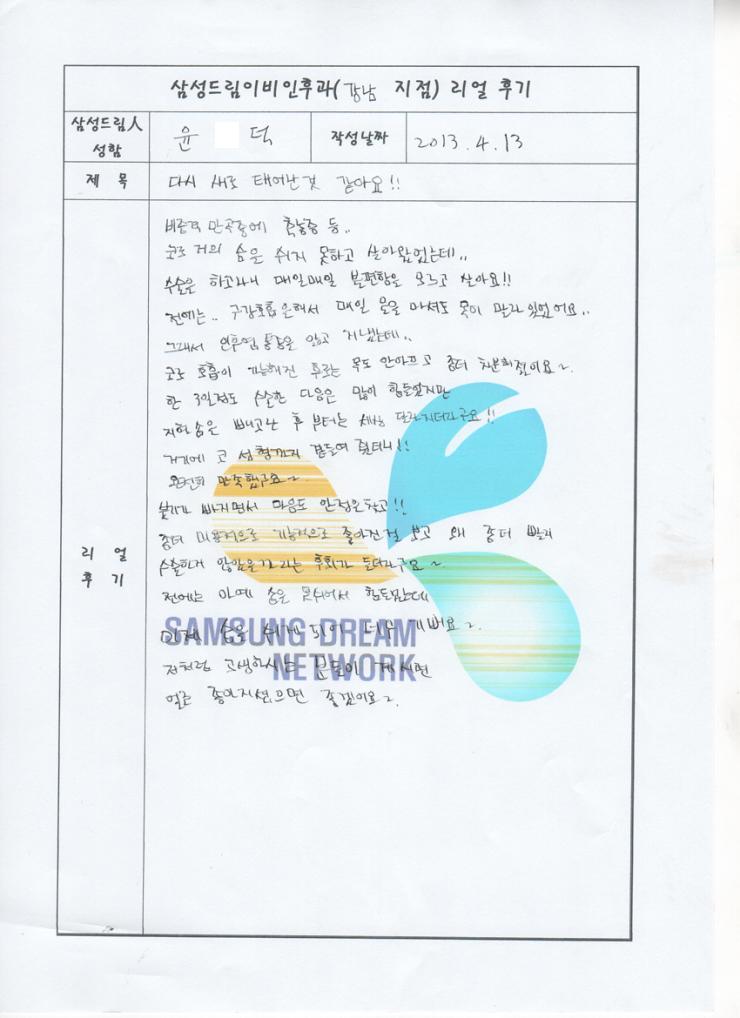 삼성드림이비인후과(강남 지점) 리얼 후기
삼성드림人 성함
윤 덕
작성날짜
2013.4.13
제 목
다시 새로 태어난것 같아요!!
리 얼 후 기
비중격 만곡증에 축농증 등..
코로 거의 숨을 쉬지 못하고 살아왔었는데..
수술을 하고나니 매일매일 불편함을 모르고 살아요!!
전에는.. 구강호흡을해서 매일 물을 마셔도 목이 말라있었어요..
그래서 인후염, 통증을 안고 지냈는데..
코로 호흡이 가능해진 후로는 목도 안아프고 좀더 차분해졌어요~
한 3일정도 수술한 다음은 많이 힘들었지만
지혈솜을 빼고난 후 부터는 세상 달라지더라구요!!
거기에 코 성형까지 곁들여 줬더니!!
완전히 만족했구요~
붓기가 빠지면서 마음도 안정을찾고!!
좀더 미용적으로 기능적으로 좋아진걸 보고 왜 좀더 빨리
수술하지 않았을까라는 후회가 들더라구요~
전에는 아예 숨을 못쉬어서 힘들었는데
이제 숨을 쉬게 되어 너무 기뻐요~
저처럼 고생하시는 분들이 계시면
얼른 좋아지셨으면 좋겠어요~
SAMSUNG DREAM
NETWORK